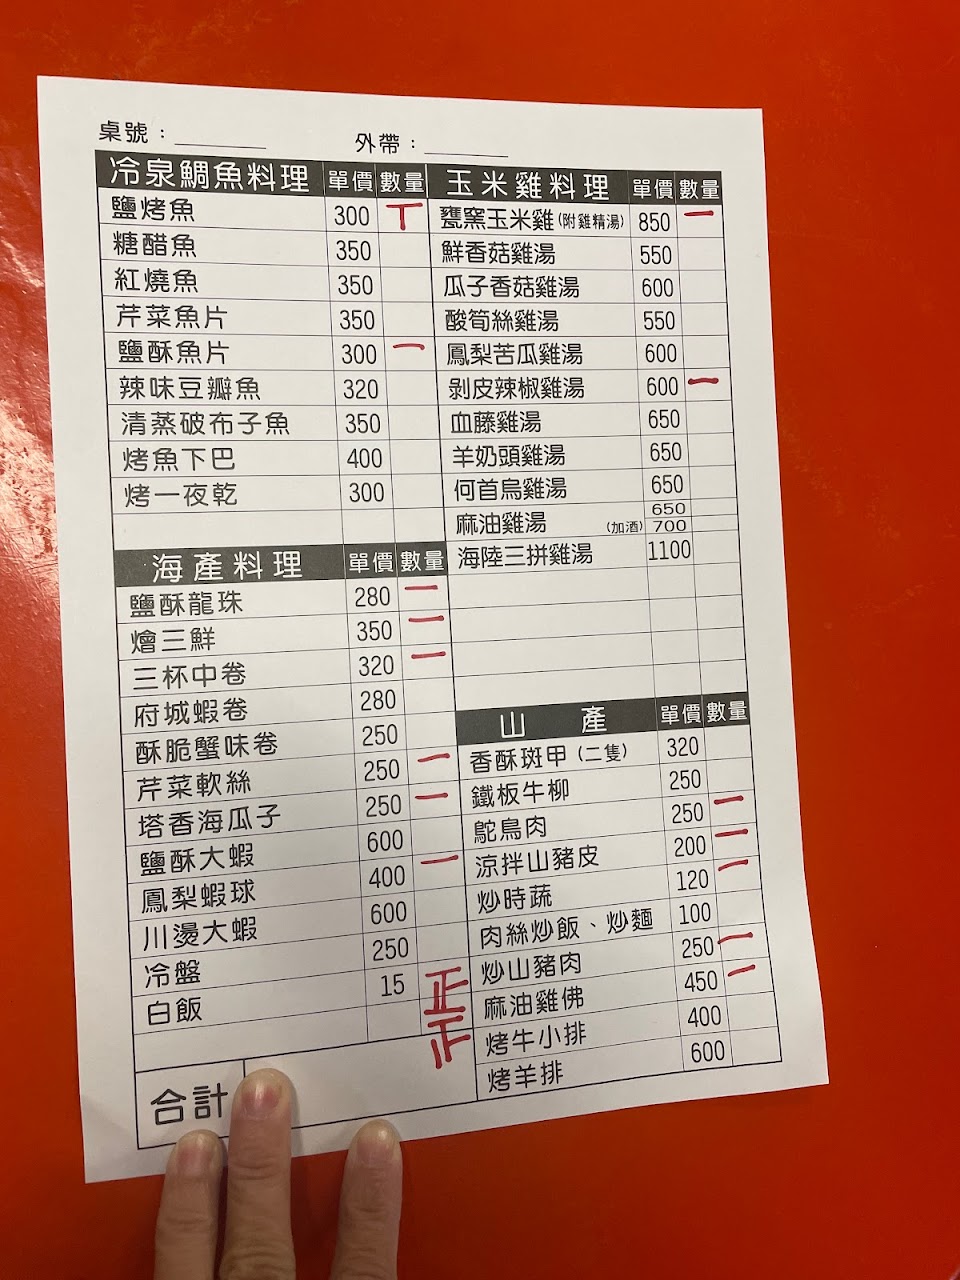 桌號：
外帶：
冷泉鯛魚料理 單價 數量
鹽烤魚 300 丅
糖醋魚 350
紅燒魚 350
芹菜魚片 350
鹽酥魚片 300 一
辣味豆瓣魚 320
清蒸破布子魚 350
烤魚下巴 400
烤一夜乾 300
海產料理 單價 數量
鹽酥龍珠 280 一
燴三鮮 350 一
三杯中卷 320 一
府城蝦卷 280
酥脆蟹味卷 250
芹菜軟絲 250 一
塔香海瓜子 250 一
鹽酥大蝦 600
鳳梨蝦球 400 一
川燙大蝦 600
冷盤 250
白飯 15 正
止
合計
玉米雞料理 單價 數量
甕窯玉米雞(附雞精湯) 850 一
鮮香菇雞湯 550
瓜子香菇雞湯 600
酸筍絲雞湯 550
鳳梨苦瓜雞湯 600
剝皮辣椒雞湯 600 一
血藤雞湯 650
羊奶頭雞湯 650
何首烏雞湯 650
麻油雞湯 650
(加酒) 700
海陸三拼雞湯 1100
山產 單價 數量
香酥斑甲(二隻) 320
鐵板牛柳 250
鴕鳥肉 250 一
涼拌山豬皮 200 一
炒時蔬 120 一
肉絲炒飯、炒麵 100
炒山豬肉 250 一
麻油雞佛 450 一
烤牛小排 400
烤羊排 600